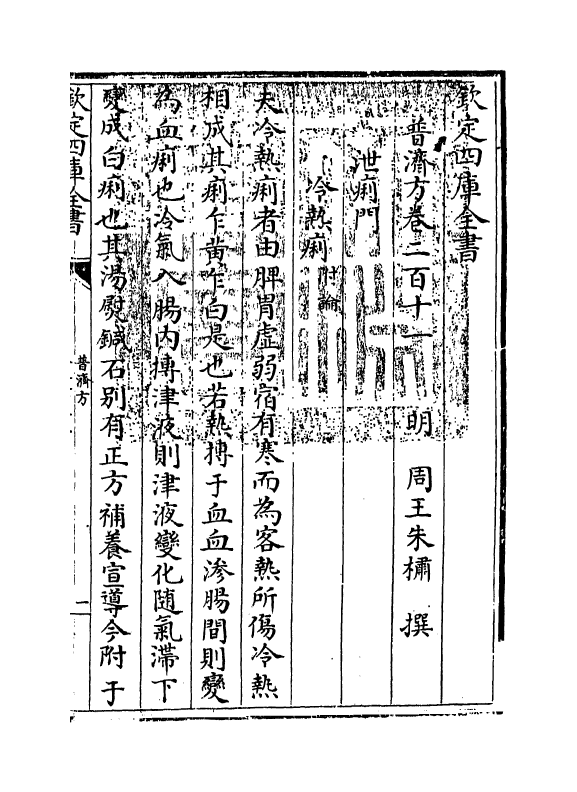 欽定四庫全書
普濟方卷二百十一　明　周王朱橚　撰
泄痢門
冷熱痢附論
夫冷熱痢者由脾胃虛弱宿有寒而為客熱所傷冷熱
相成其痢乍黃乍白是也若熱摶于血血滲腸間則變
為血痢也冷氣入腸內摶津液則津液變化隨氣滯下
變成白痢也其湯熨鍼石別有正方補養宣導今附于
欽定四庫全書
普濟方
一